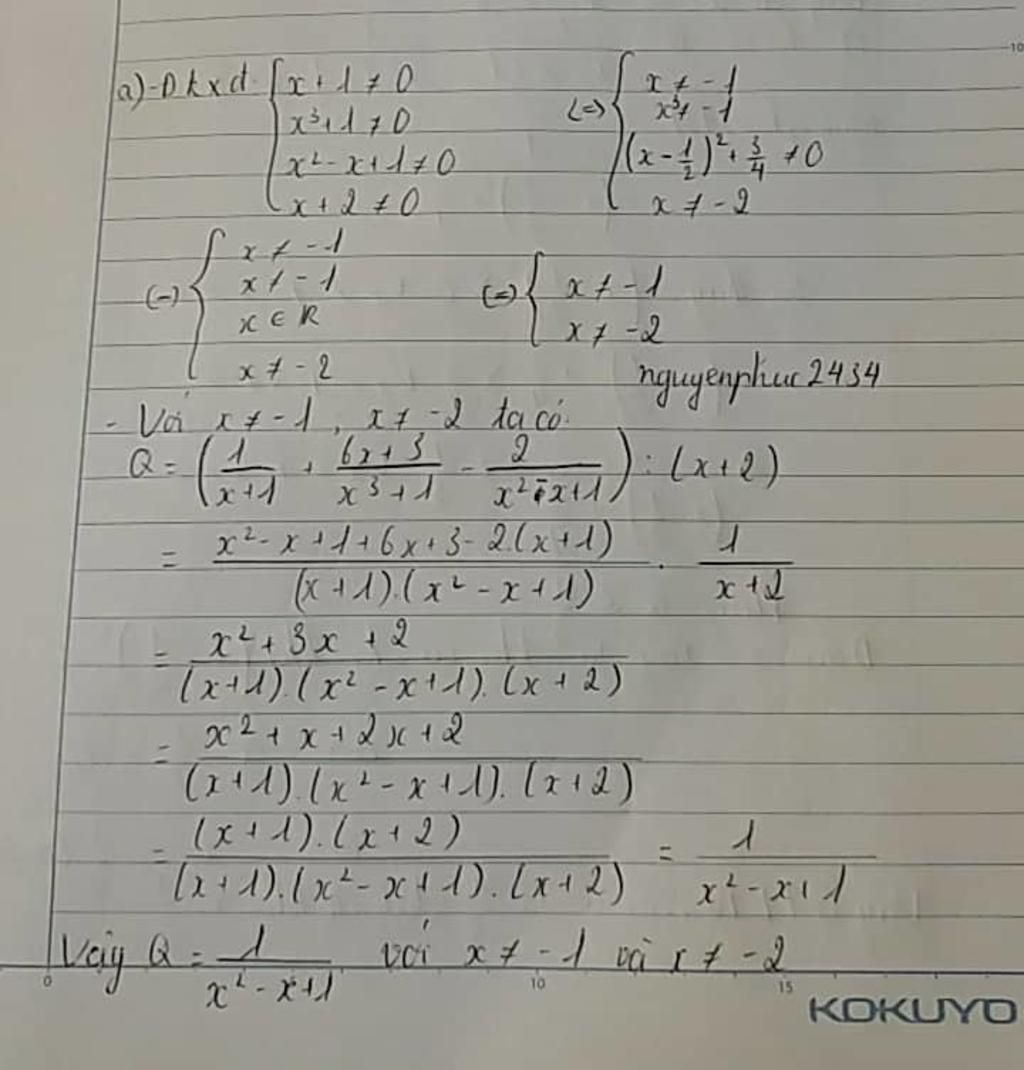 10
a) -Đkxđ {x + 1 ≠ 0 (=) {x ≠ -1
x³ + 1 ≠ 0 x³ ≠ -1
x² - x + 1 ≠ 0 (x - 1/2)² + 3/4 ≠ 0
x + 2 ≠ 0 x ≠ -2
(=) {x ≠ -1
x ≠ -1 (=) {x ≠ -1
x ∈ R x ≠ -2
x ≠ -2 nguyenphuc2434
- Với x ≠ -1, x ≠ -2 ta có:
Q = (1/(x+1) + (6x+3)/(x³+1) - 2/(x²-x+1)) : (x+2)
= (x² - x + 1 + 6x + 3 - 2.(x+1))/((x+1).(x² - x + 1)) . 1/(x+2)
= (x² + 3x + 2)/((x+1).(x² - x + 1).(x + 2))
= (x² + x + 2x + 2)/((x+1).(x² - x + 1).(x + 2))
= ((x+1).(x+2))/((x+1).(x² - x + 1).(x+2)) = 1/(x² - x + 1)
Vậy Q = 1/(x² - x + 1) với x ≠ -1 và x ≠ -2
0 10 15
KOKUYO